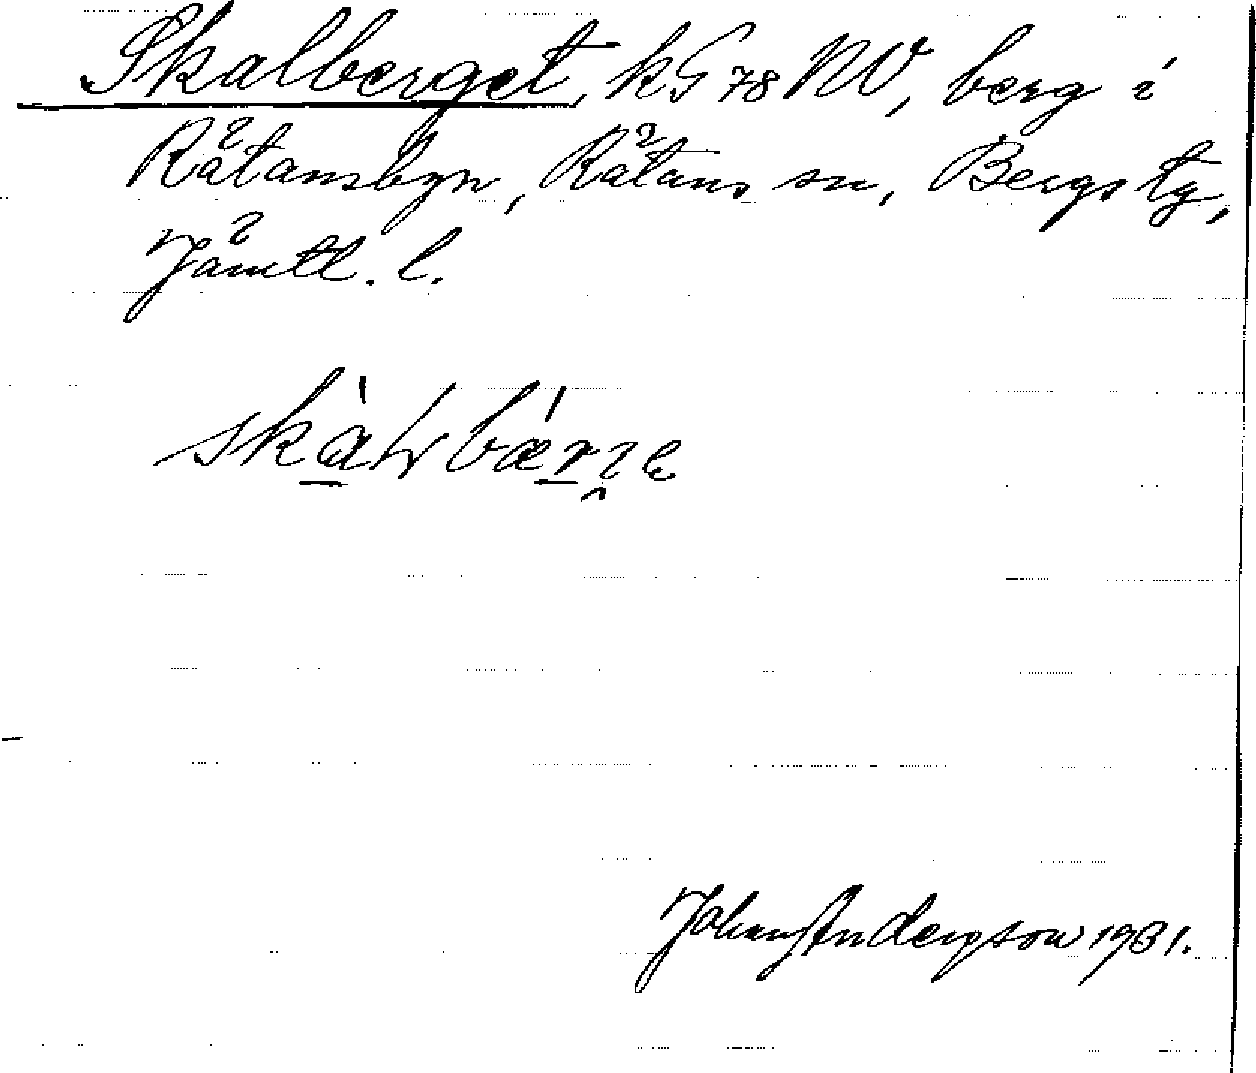 Skalberget, kG 78 NV, berg i
Rätansbyn, Rätans sn, Bergs tg,
Jämtl. l.
Johans Anderson 1931.